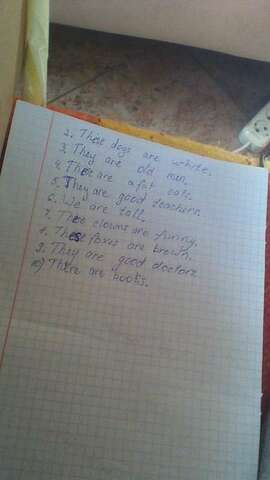 2. These dogs are white.
3. They are old men.
4. These are a fat cats.
5. They are good teachers.
6. We are tall.
7. These clowns are funny.
8. These foxes are brown.
9. They are good doctors.
10) These are books.